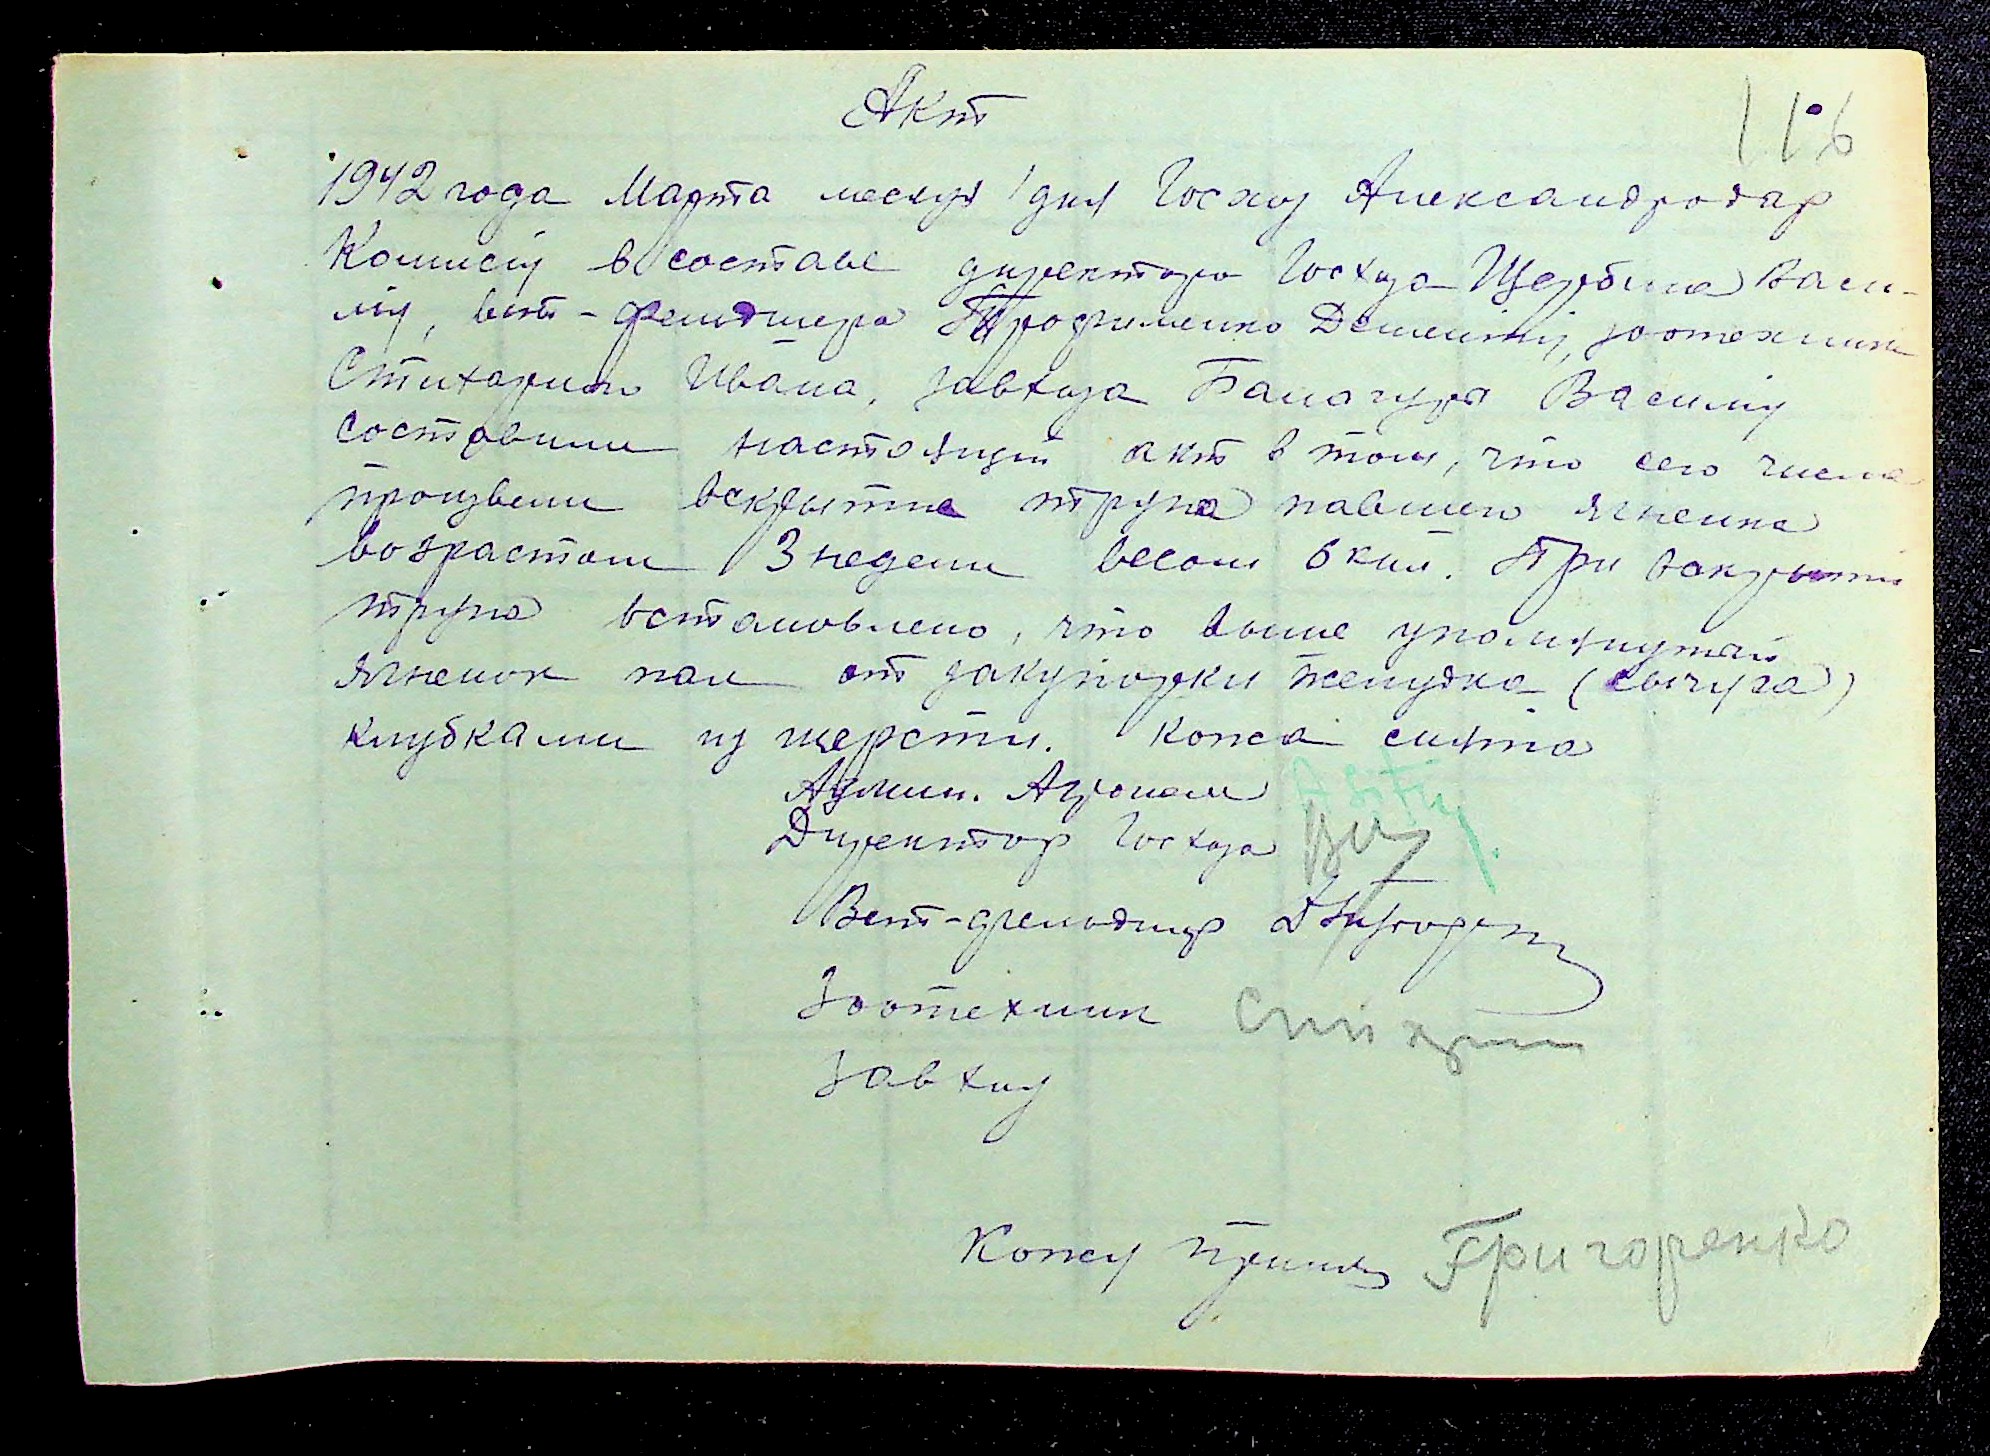 Акт
116
1942 года Марта месяця 1 дня Госхоз Александродар
Комисия в составе директора Госхоза Щербина Васи-
лия, вет-фельдшера Трофименко Дементия, зоотехника
Стихарина Ивана, завхоза Балагура Василия
составили настоящий акт в том, что сего числа
произвели вскрытие трупа павшего ягненка
возрастом 3 недели весом 6 кил. При вскрытии
трупа встановлено, что выше упомянутый
ягненок пал от закупорки желудка (сычуга)
клубками из шерсти. Кожа снята
Админ.
Директор Госхоза
Вет-фельдшер
Зоотехник
Завхоз
Кожу принял Григоренко